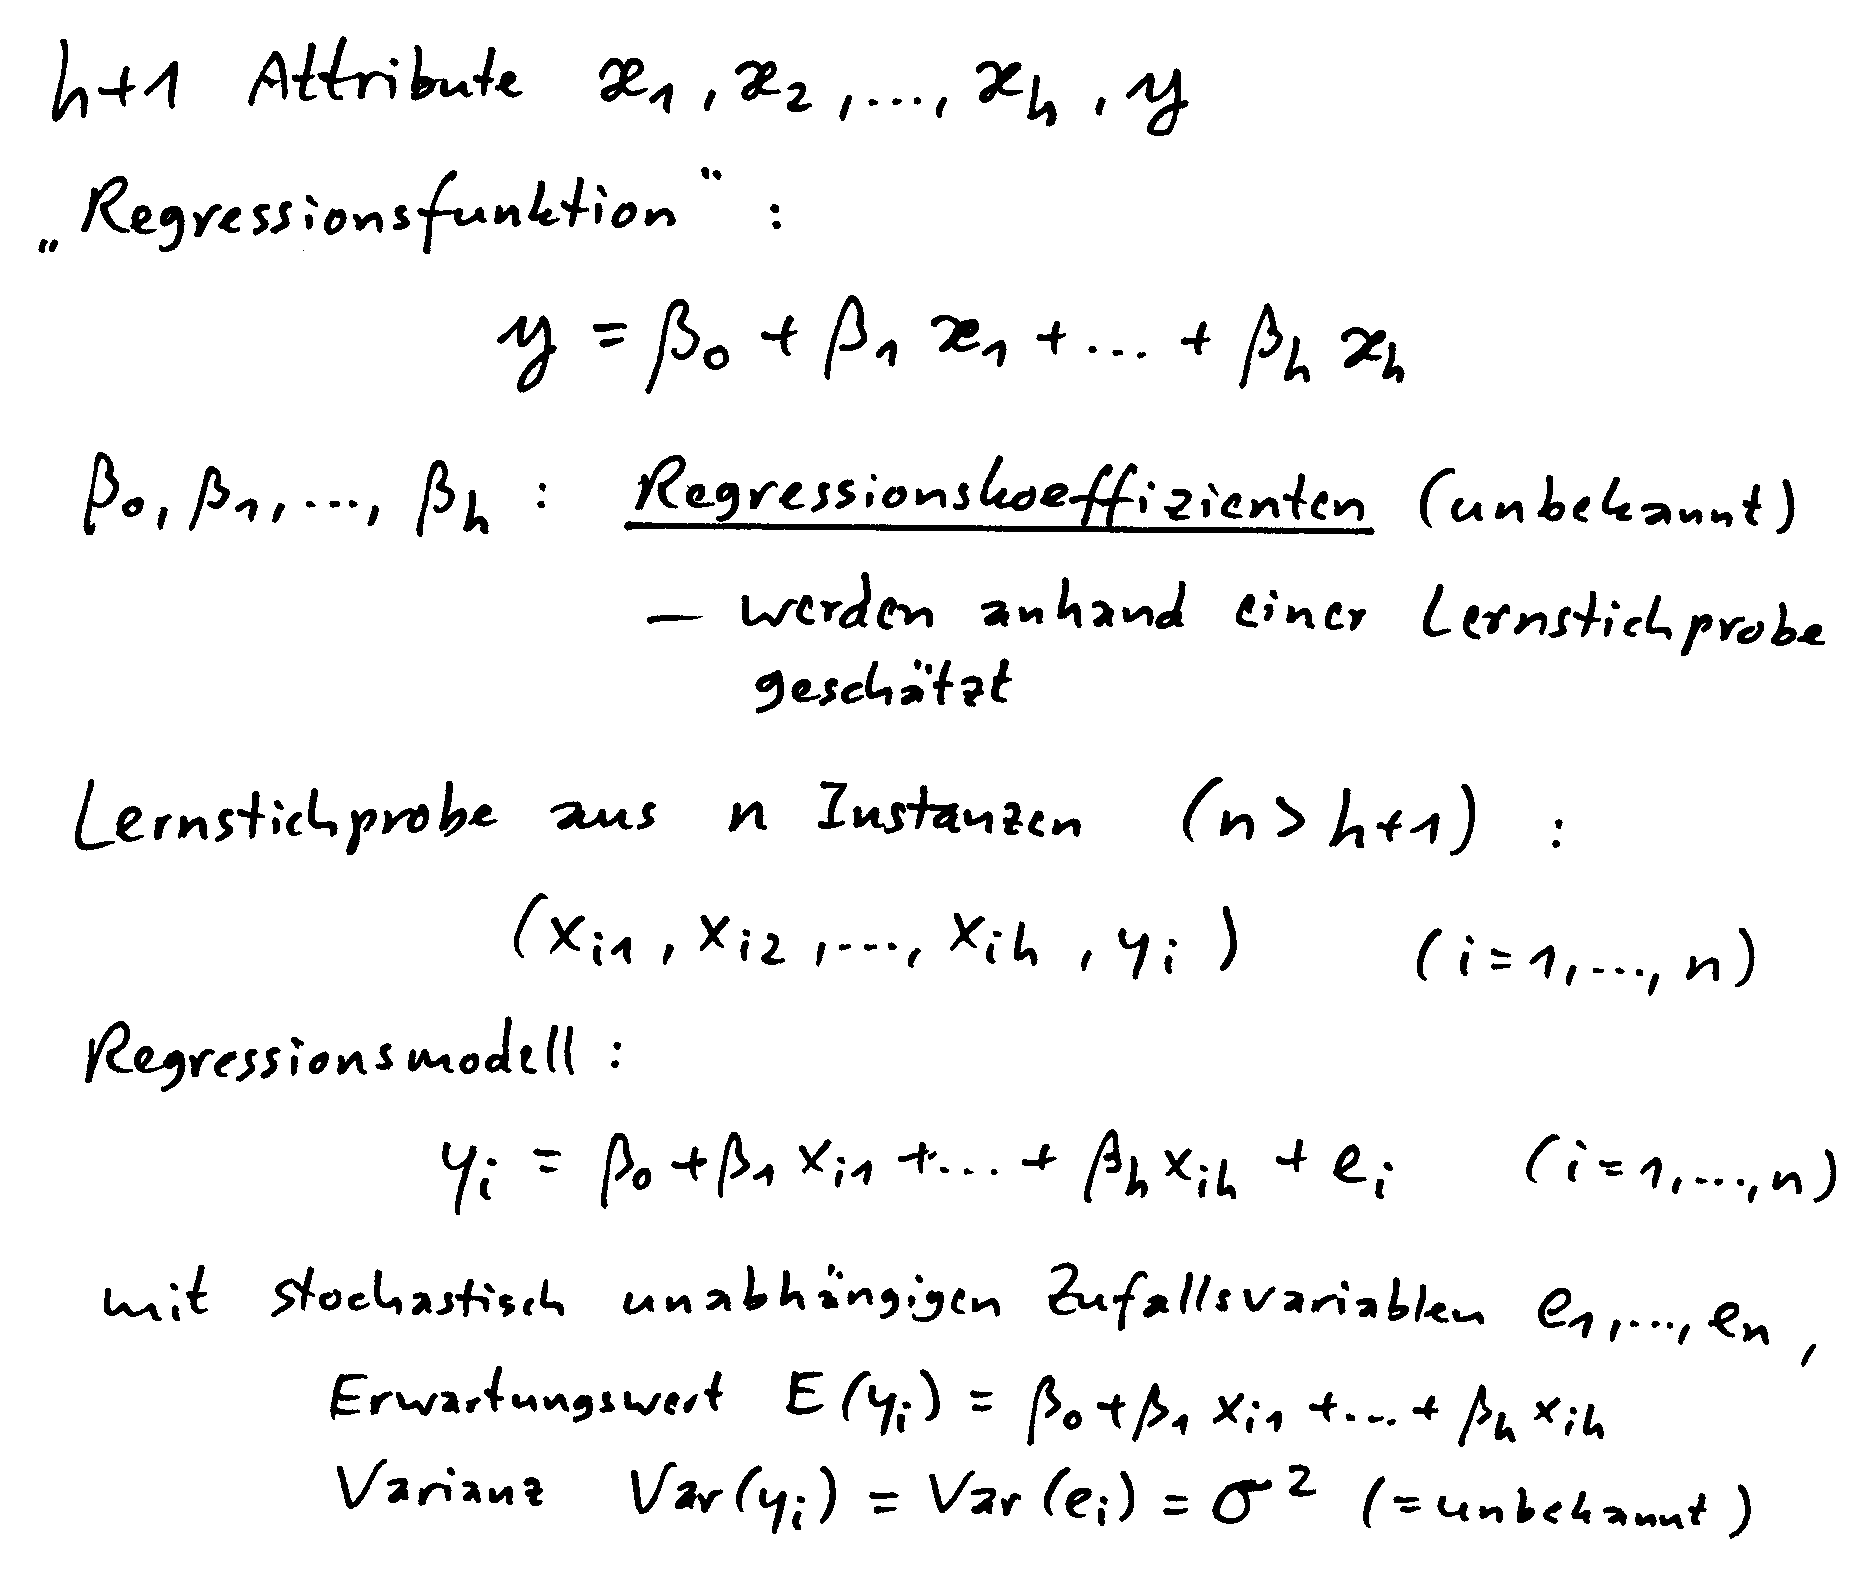 h+1 Attribute x₁, x₂, ..., xₕ, y
„Regressionsfunktion“ :
y = β₀ + β₁ x₁ + ... + βₕ xₕ
β₀, β₁, ..., βₕ : Regressionskoeffizienten (unbekannt)
— werden anhand einer Lernstichprobe
geschätzt
Lernstichprobe aus n Instanzen (n > h+1) :
(xᵢ₁, xᵢ₂, ..., xᵢₕ, yᵢ) (i=1, ..., n)
Regressionsmodell :
yᵢ = β₀ + β₁ xᵢ₁ + ... + βₕ xᵢₕ + eᵢ (i=1, ..., n)
mit stochastisch unabhängigen Zufallsvariablen e₁, ..., eₙ,
Erwartungswert E(yᵢ) = β₀ + β₁ xᵢ₁ + ... + βₕ xᵢₕ
Varianz Var(yᵢ) = Var(eᵢ) = σ² (= unbekannt)